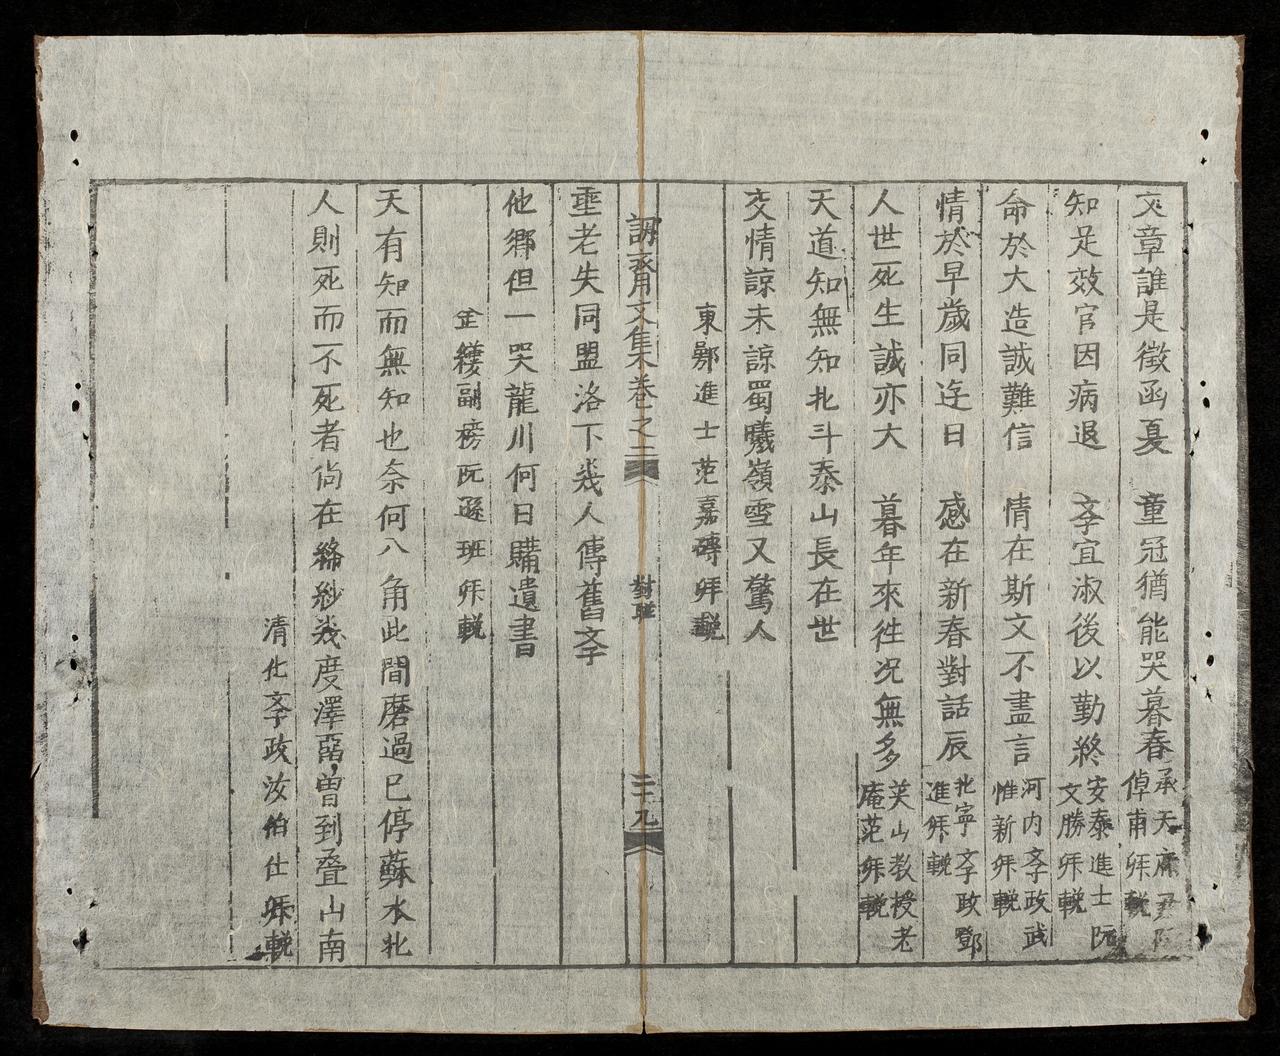 文章誰是徵函夏　童冠猶能哭暮春承天府尹阮
倬甫𢱭輓
知足效官因病退　孝宜淑後以勤終安泰進士阮
文勝𢱭輓
命於大造誠難信　情在斯文不盡言河内孝政武
惟新𢱭輓
情於早歲同遊日　感在新春對話辰北寧孝政鄧
進𢱭輓
人世死生誠亦大　暮年來徃况無多芙山教授老
庵范𢱭輓
天道知無知北斗泰山長在世
交情諒未諒蜀曦嶺雪又驚人
東鄞進士范嘉磚𢱭輓
訒齋文集卷之二　對聯　二十九
垂老失同盟洛下幾人傳舊孝
他鄉但一哭龍川何日購遺書
金縷副榜阮遜班𢱭輓
天有知而無知也奈何八角此間磨過已停蘇水北
人則死而不死者尚在絳紗幾度澤罶曽到疊山南
清化孝政汝伯仕𢱭輓